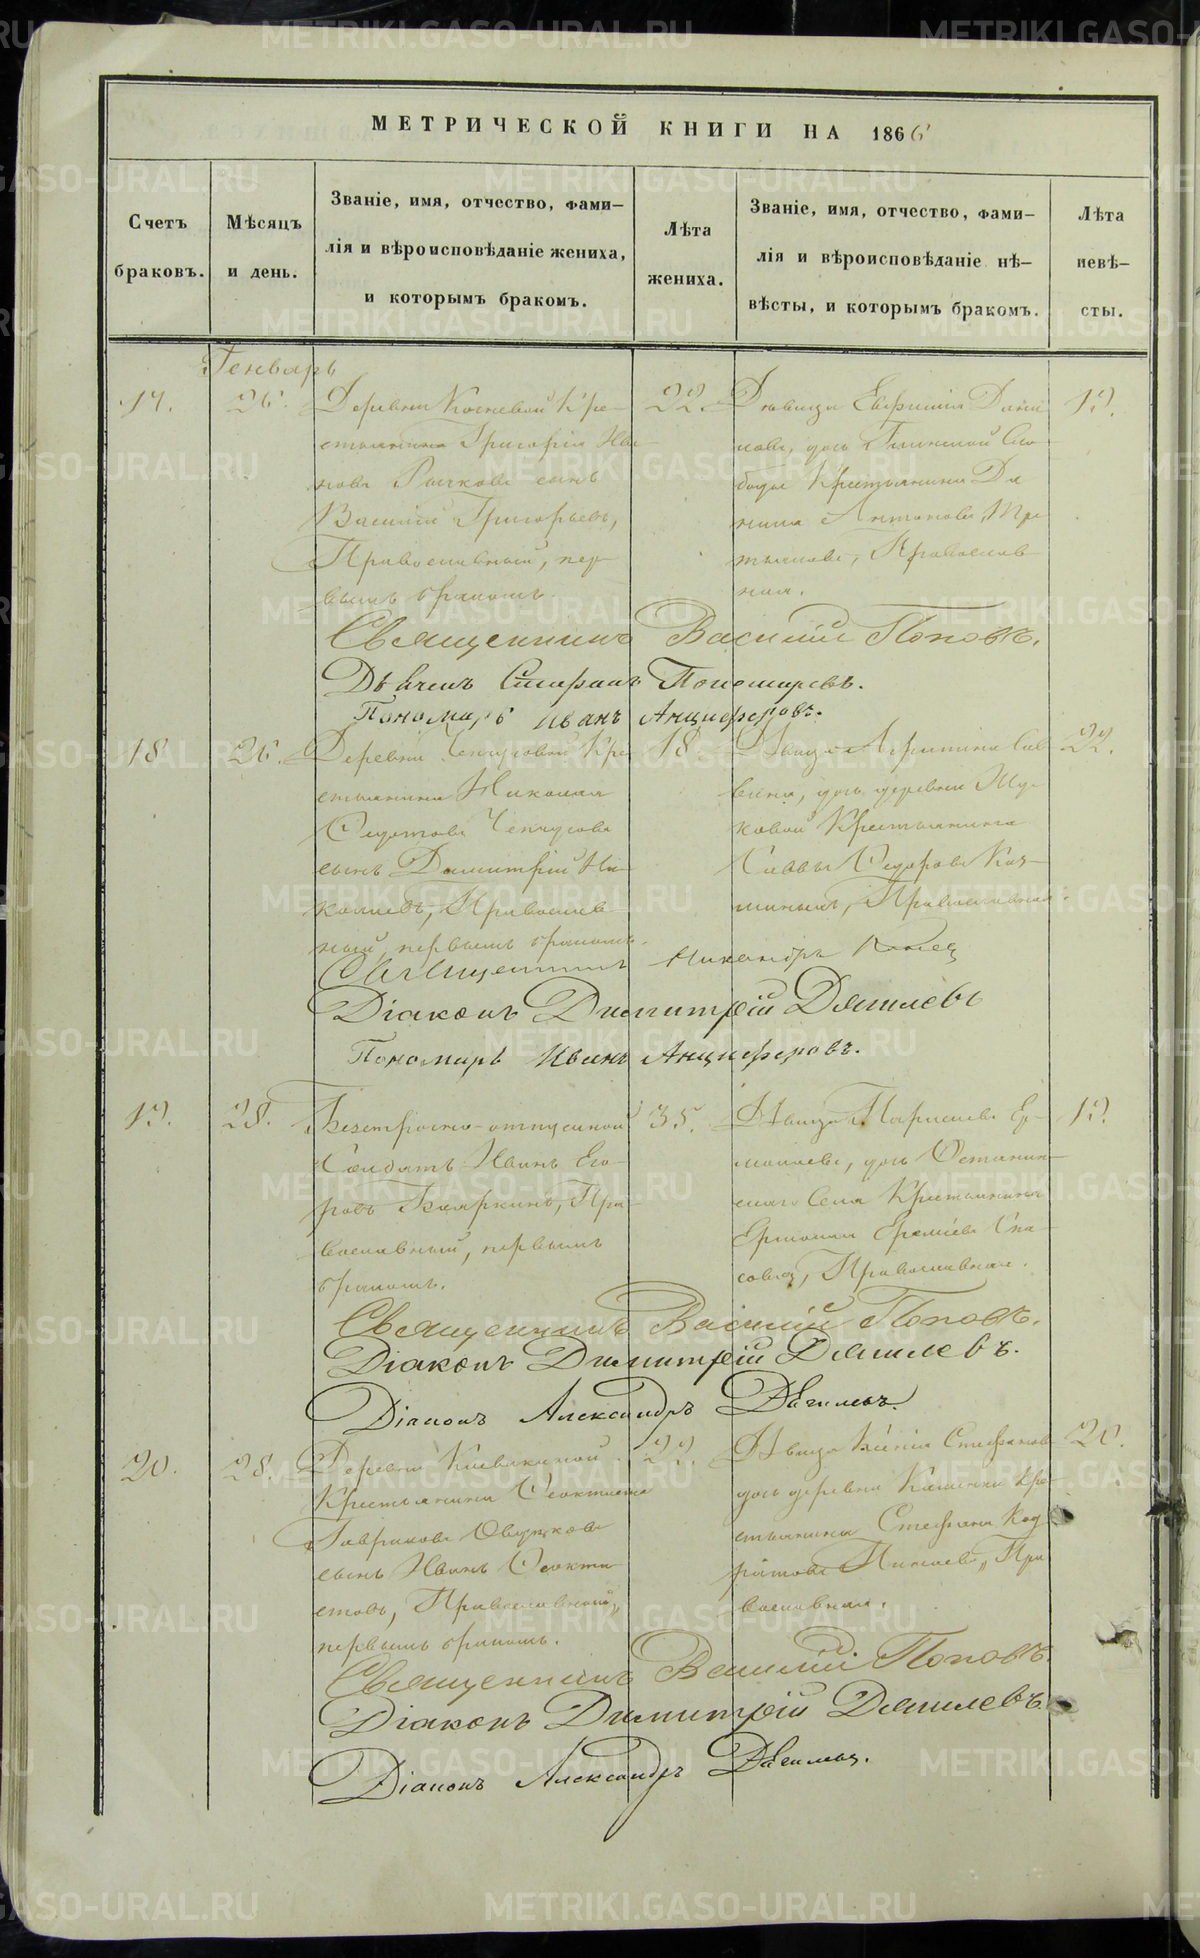 МЕТРИЧЕСКОЙ КНИГИ НА 1866
Счетъ браковъ.
Мѣсяцъ и день.
Званіе, имя, отчество, фами-
лія и вѣроисповѣданіе жениха,
и которымъ бракомъ.
Лѣта жениха.
Званіе, имя, отчество, фами-
лія и вѣроисповѣданіе нѣ-
вѣсты, и которымъ бракомъ.
Лѣта невѣ-
сты.
Генварь
17.
26.
Деревни Кре-
стьянина Григорія Ива-
нова Рычкова сынъ
Василій Григорьевъ,
Православный, пер-
вымъ бракомъ.
22.
Дѣвица Евфимія Дани-
лова, дочь Глинской Сло-
боды Крестьянина Да-
нила Антонова
Православ-
ная.
19.
Священникъ Василій Поповъ.
Дьячекъ Стефанъ Пономаревъ.
Пономарь Иванъ Анциферовъ.
18
26.
Деревни Чепчуговой Кре-
стьянина Николая
Федотова Чепчугова
сынъ Димитрій Ни-
колаевъ, Православ-
ный, первымъ бракомъ.
18.
Дѣвица Сав-
вина, дочь деревни
Крестьянина
Саввы Федорова
Православная.
22.
Священникъ Никандръ
Діаконъ Димитрій Дягилевъ
Пономарь Иванъ Анциферовъ.
19.
28.
Безсрочно-отпускной
Солдатъ Иванъ Его-
ровъ Бояркинъ, Пра-
вославный, первымъ
бракомъ.
35.
Дѣвица Параскева Ер-
молаева, дочь Останин-
скаго Села Крестьянина
Ермолая Еремѣева Спа-
сова, Православная.
19.
Священникъ Василій Поповъ.
Діаконъ Димитрій Дягилевъ.
Діаконъ Александръ Дягилевъ.
20.
28.
Деревни
Крестьянина Феоктиста
Гаврилова
сынъ Иванъ Феокти-
стовъ, Православный,
первымъ бракомъ.
22.
Дѣвица Ксенія Стефанова
дочь деревни Каменки Кре-
стьянина Стефана Код-
ратова Пинаева, Пра-
вославная.
20.
Священникъ Василій Поповъ.
Діаконъ Димитрій Дягилевъ.
Діаконъ Александръ Дягилевъ.
METRIKI.GASO-URAL.RU